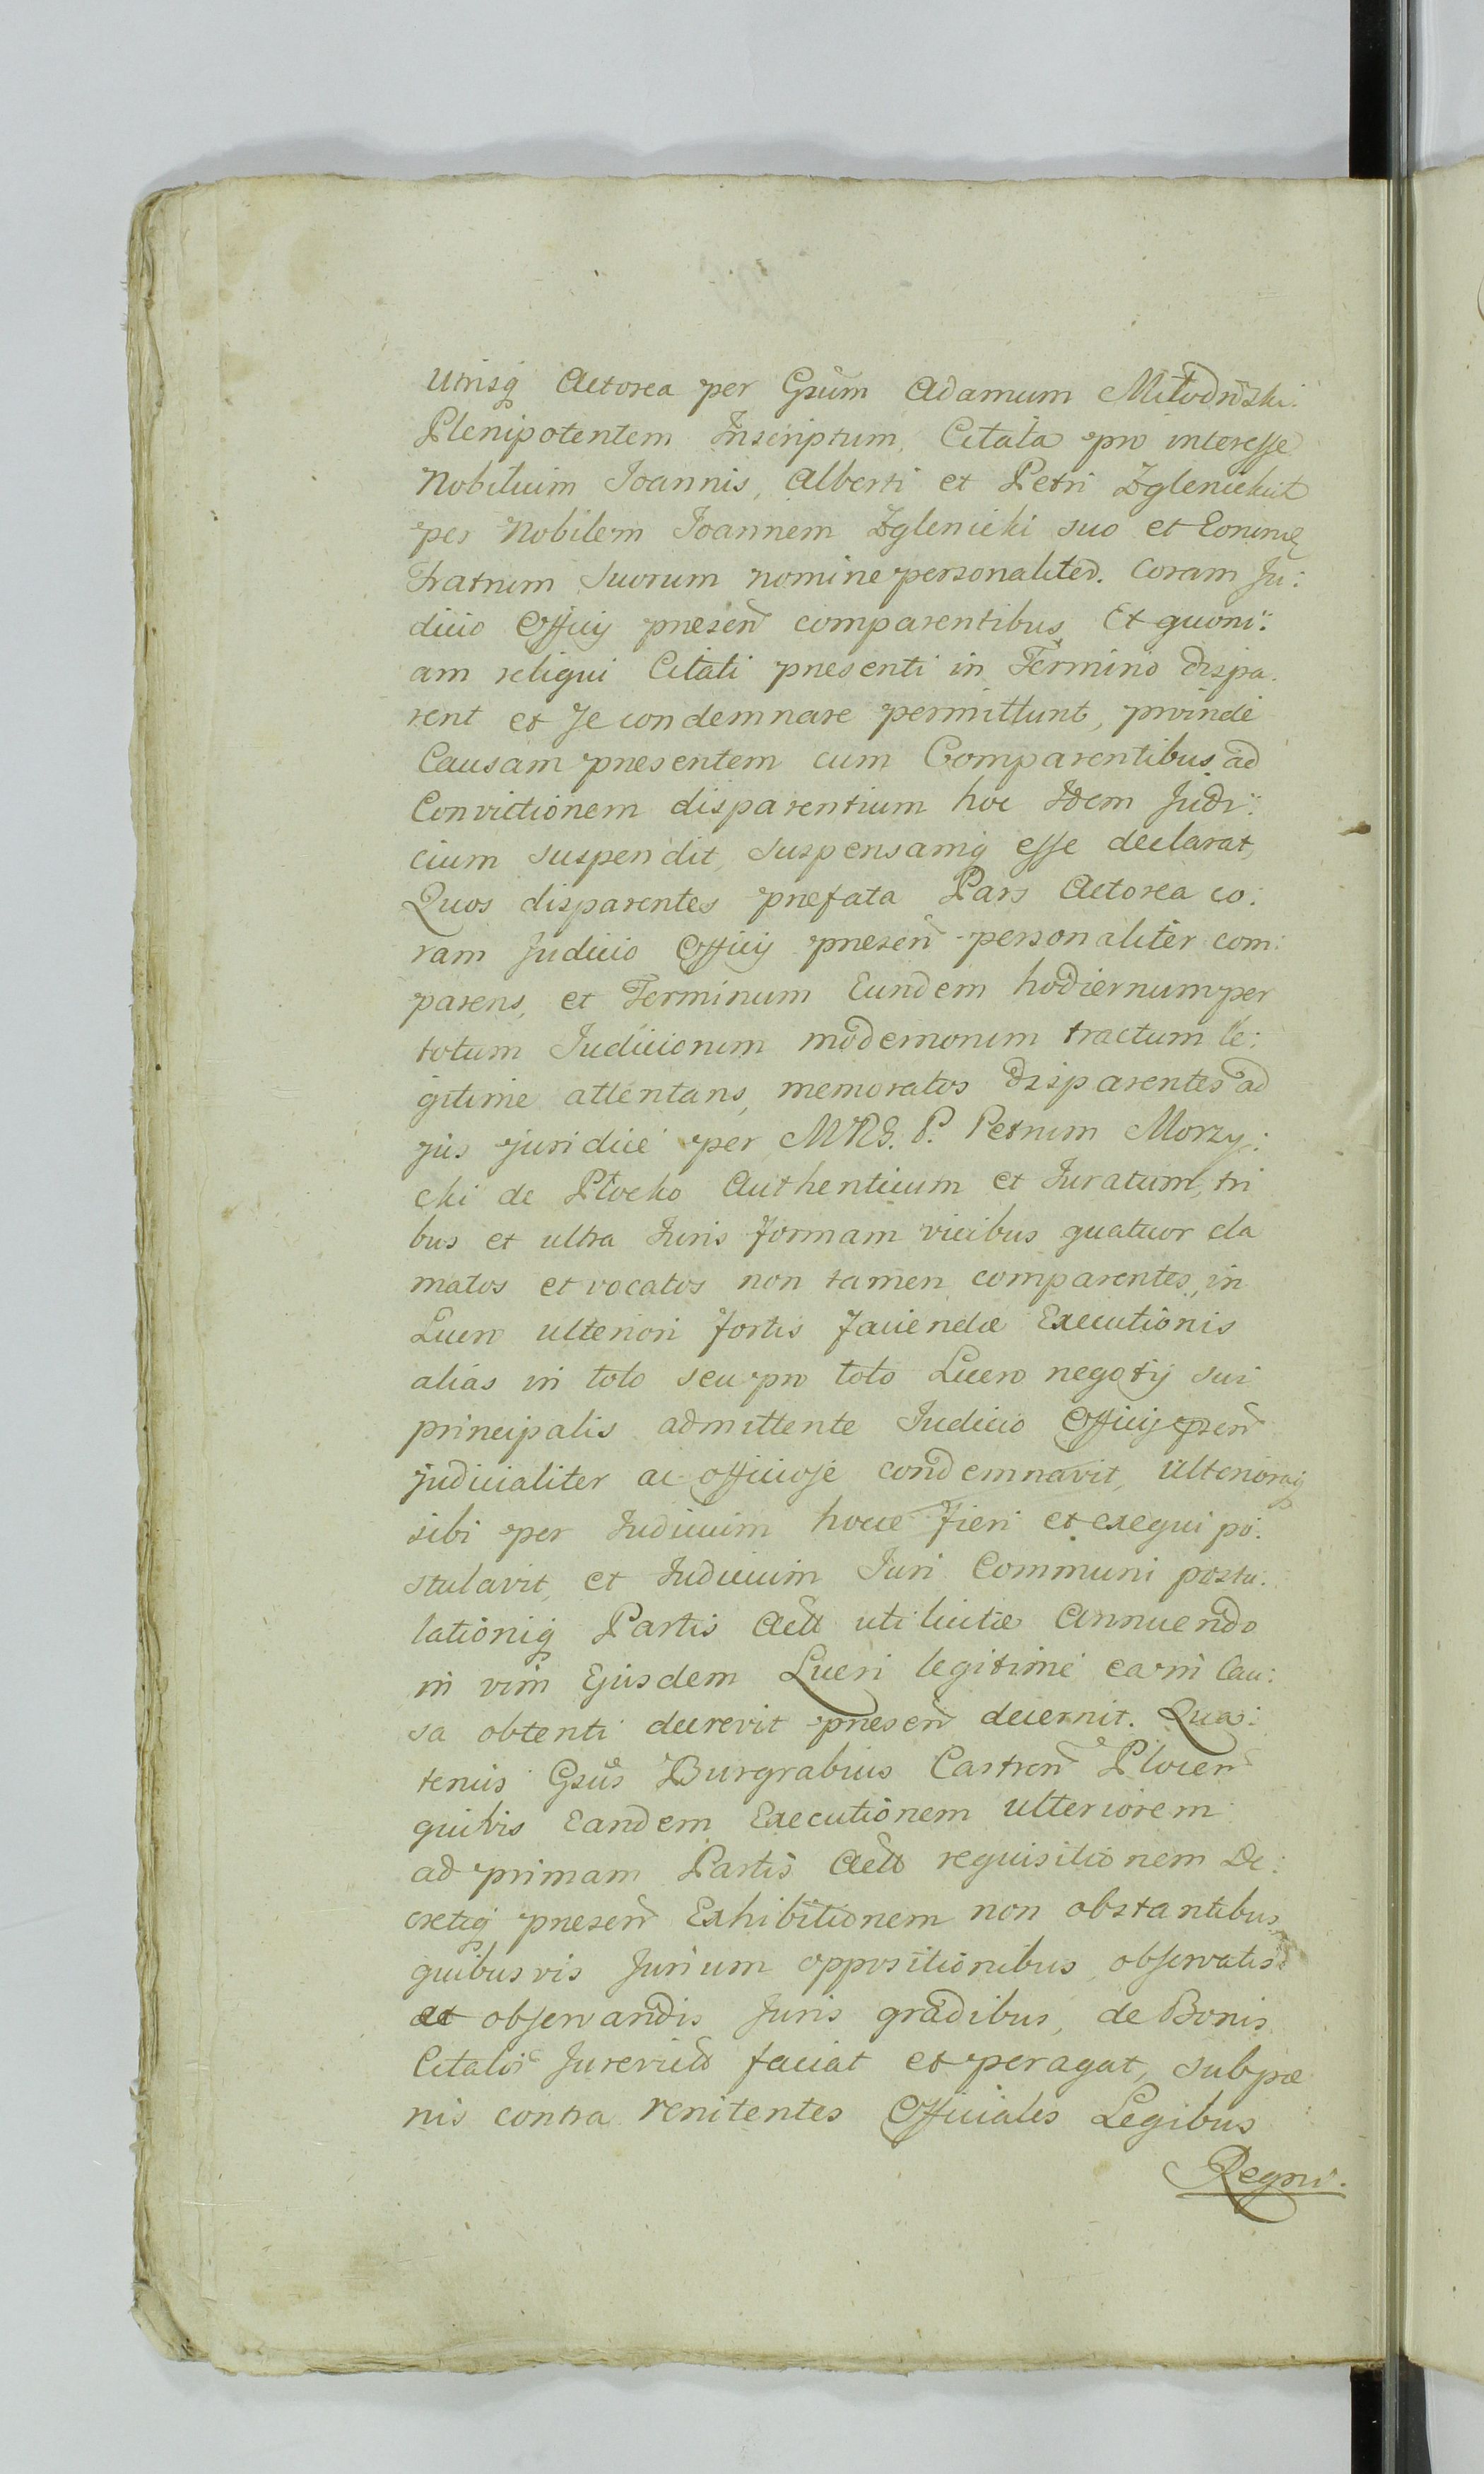 utrisq Actorea per Gsum Adamum Młodzński
Plenipotentem Inscriptum, Citata pro interesse
Nobilium Joannis, Alberti et Petri Zglenickich
per Nobilem Joannem Zglenicki suo et Eorum
Fratrum Suorum nomine personaliter. Coram Ju:
dicio Officij presen comparentibus, Et quoni:
am reliqui Citati presenti in Termino dispa.
rent et se condemnare permittunt, proinde
Causam presentem cum Comparentibus ad
Convictionem disparentium hoc Idem Judi:
cium suspendit, suspensamq esse declarat,
Quos disparentes prefata Pars Actorea co:
ram Judicio Officij presen personaliter com:
parens, et Terminum Eundem hodiernum per
totum Judiciorum modernorum tractum le:
gitime attentans, memoratos disparentes ad
jus juridice per MRG. P. Petrum Morzy:
cki de Płocko Authenticum et Juratum, tri
bus et ultra Juris formam vicibus quatuor cla
matos et vocatos non tamen comparentes, in
Lucro ulteriori fortis faciendæ Executionis
alias in toto seu pro toto Lucro negotij sui
principalis admittente Judicio Officij presen
judicialiter ac officiose condemnavit, Ulterioraq
sibi per Judicium hocce fieri et exequi po:
stulavit, et Judicium Juri Communi postu:
lationiq Partis Act uti licitæ Annuendo
in vim Ejusdem Lucri legitime ea in Cau:
sa obtenti decrevit presen decernit. Qua:
tenus Gsus Burgrabius Castren Plocen
quivis Eandem Executionem ulteriorem
ad primam Partis Act requisitionem De:
cretiq presen Exhibitionem non obstantibus
quibusvis Jurium oppositionibus, observatis
et observandis Juris gradibus, de Bonis
Citator Jurevict faciat et peragat, sub pæ
nis contra renitentes Officiales Legibus
Regni.